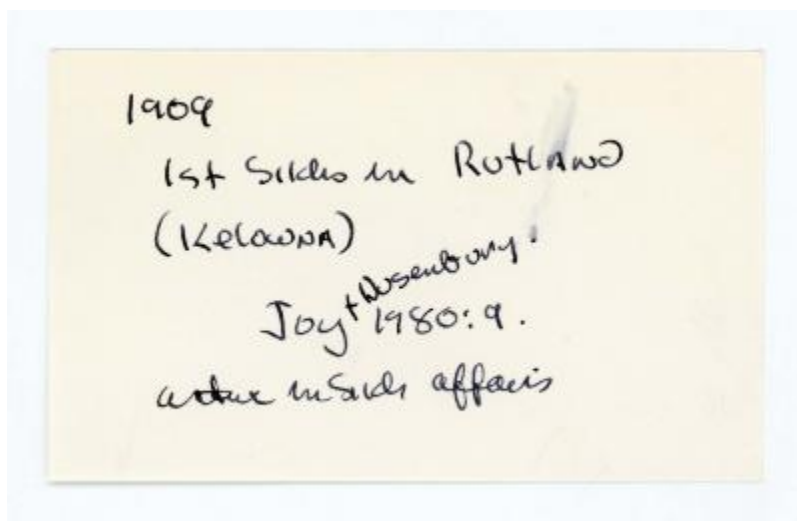 1909
1st Sikhs in RUTLAND
(KelowNA)
Joy + Dusenbury.
1980:9.
active in Sikh affairs